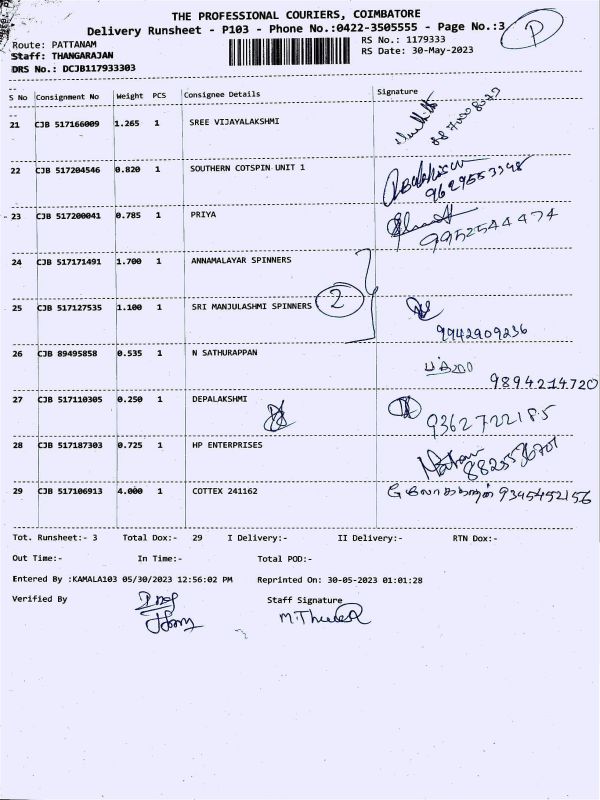 THE PROFESSIONAL COURIERS, COIMBATORE
Delivery Runsheet - P103 - Phone No.:0422-3505555 - Page No.:3
P
Route: PATTANAM
RS No.: 1179333
Staff: THANGARAJAN
RS Date: 30-May-2023
DRS No.: DCJB117933303
S No Consignment No Weight PCS Consignee Details Signature
21 CJB 517166009 1.265 1 SREE VIJAYALAKSHMI
22 CJB 517204546 0.820 1 SOUTHERN COTSPIN UNIT 1
9629553348
23 CJB 517200041 0.785 1 PRIYA
9952544474
24 CJB 517171491 1.700 1 ANNAMALAYAR SPINNERS
2
25 CJB 517127535 1.100 1 SRI MANJULASHMI SPINNERS
9942909236
26 CJB 89495858 0.535 1 N SATHURAPPAN
9894214720
27 CJB 517110305 0.250 1 DEPALAKSHMI
9362722185
28 CJB 517187303 0.725 1 HP ENTERPRISES
29 CJB 517106913 4.000 1 COTTEX 241162
9345452156
Tot. Runsheet:- 3 Total Dox:- 29 I Delivery:- II Delivery:- RTN Dox:-
Out Time:- In Time:- Total POD:-
Entered By :KAMALA103 05/30/2023 12:56:02 PM Reprinted On: 30-05-2023 01:01:28
Verified By Staff Signature